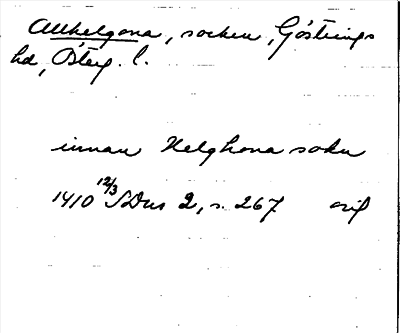 Allhelgona, socken, Göstrings
hd, Östg. l.
innan Helghona sokn
1410 12/3 SDns 2, s. 267 orig